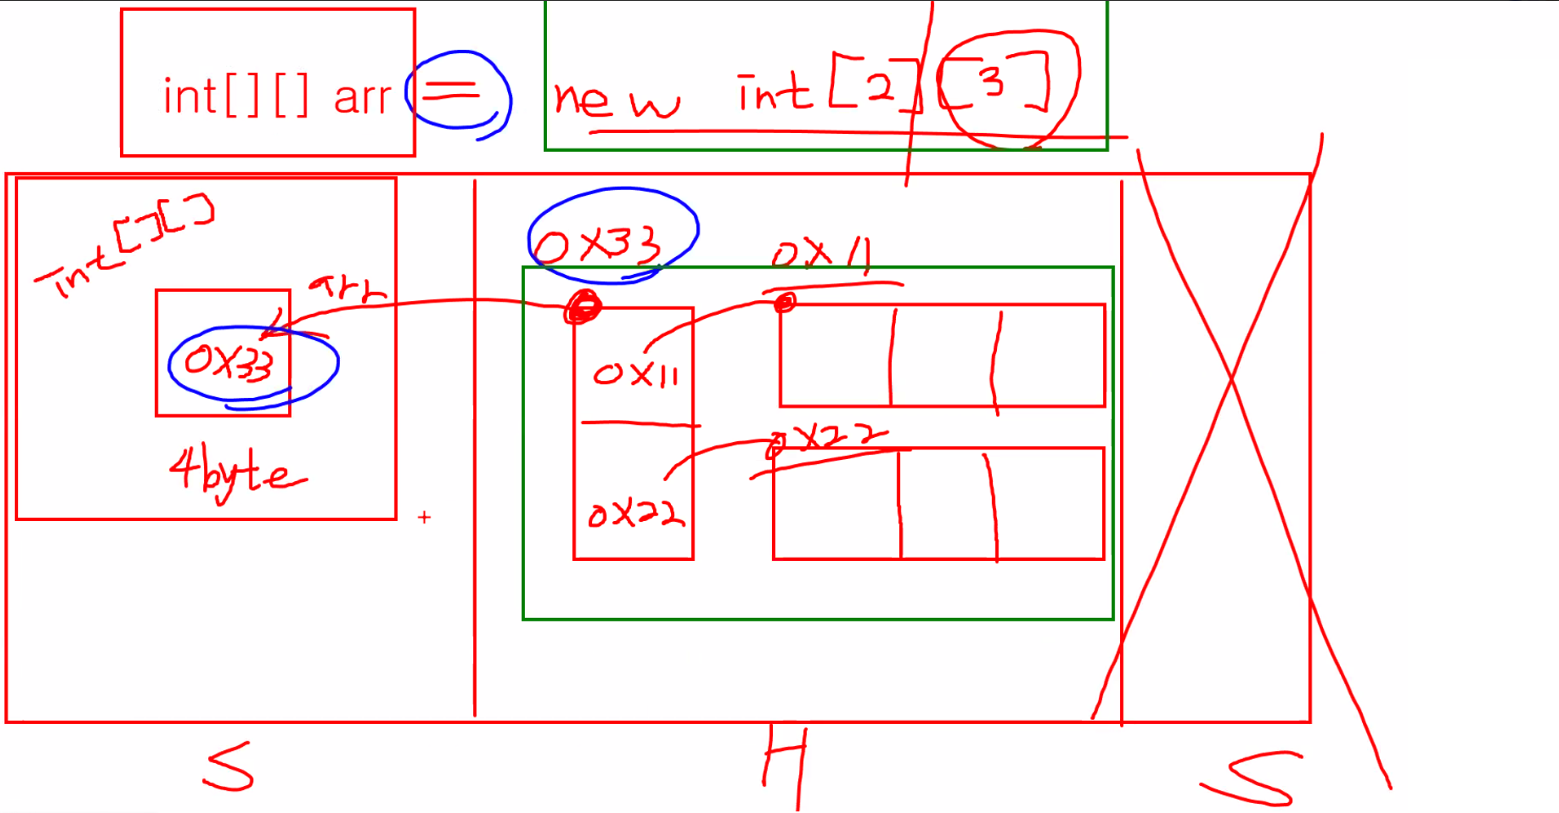 int[][] arr = new int[2][3]
int[][]
arr
0x33
4byte
0x33
0x11
0x11
0x22
0x22
S H S